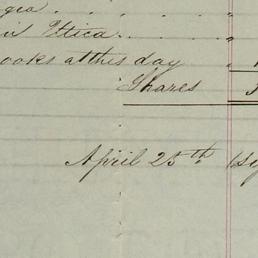 gia . . . . "
in Uttica . . . . "
ooks at this day "
Shares
April 25th (Sig